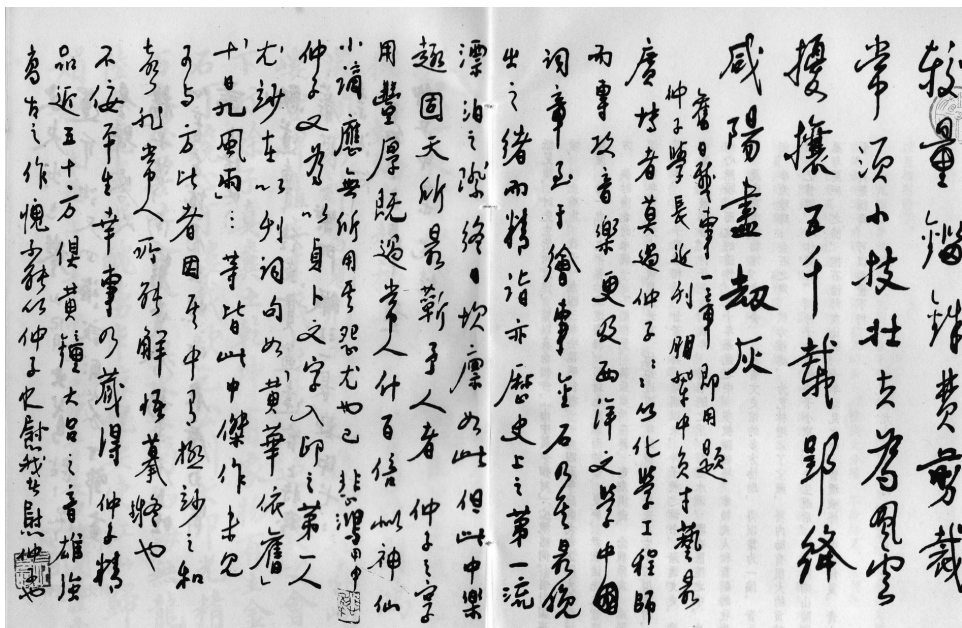 較量錙銖費剪裁
常須小技壯志為風雲
擾攘五千載眼終
咸陽盡劫灰
舊日戲事一章即用題
仲子學長近刊朋輩中負才藝最
廣博者莫過仲子仲子以化學工程師
而專攻音樂更及西洋文學中國
詞章至于繪事金石乃其最晚
出之緒而精詣亦歷史上之第一流
漂泊之際終日坎廩如此但此中樂
趣固天所最靳予人者仲子之享
用豐厚既過常人什百倍似神仙
小謫應無所用其怨尤也已悲鴻
仲子又為以貞卜文字入印之第一人
尤妙在以刊詞句如「黃華依舊」
「十日九風雨」等皆此中傑作未見
可與方比者因其中有極妙之和
奏非常人所能解悟摹擬也
不佞平生幸事乃藏得仲子精
品近五十方俱黃鐘大呂之音雄強
高古之作愧少能以仲子也慰我者慰仲子也